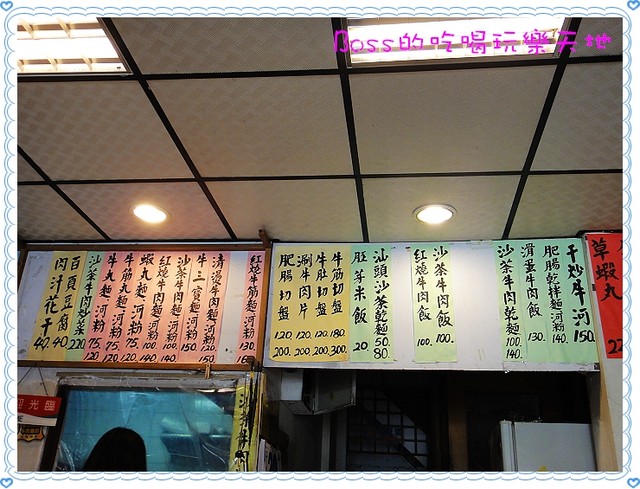 Boss的吃喝玩樂天地
干炒牛河 150.
肥腸乾拌麵河粉 140.
滑蛋牛肉飯 130.
沙茶牛肉乾麵 100. 140.
沙茶牛肉飯 100.
紅燒牛肉飯 100.
汕頭沙茶乾麵 50. 80.
胚芽米飯 20.
牛筋切盤 180. 300.
牛肚切盤 120. 200.
涮牛肉片 120. 200.
肥腸切盤 120. 200.
紅燒牛筋麵河粉 130.
清湯牛肉麵河粉
牛三寶麵河粉 120. 150.
沙茶牛肉麵河粉 150.
紅燒牛肉麵河粉 100. 140.
蝦丸麵河粉 100. 140.
牛筋丸麵河粉 75. 120.
牛丸麵河粉 75. 120.
沙茶牛肉炒菜 220
百頁豆腐 40.
肉汁花干 40.
草蝦丸
沙茶牛肉
迎光臨